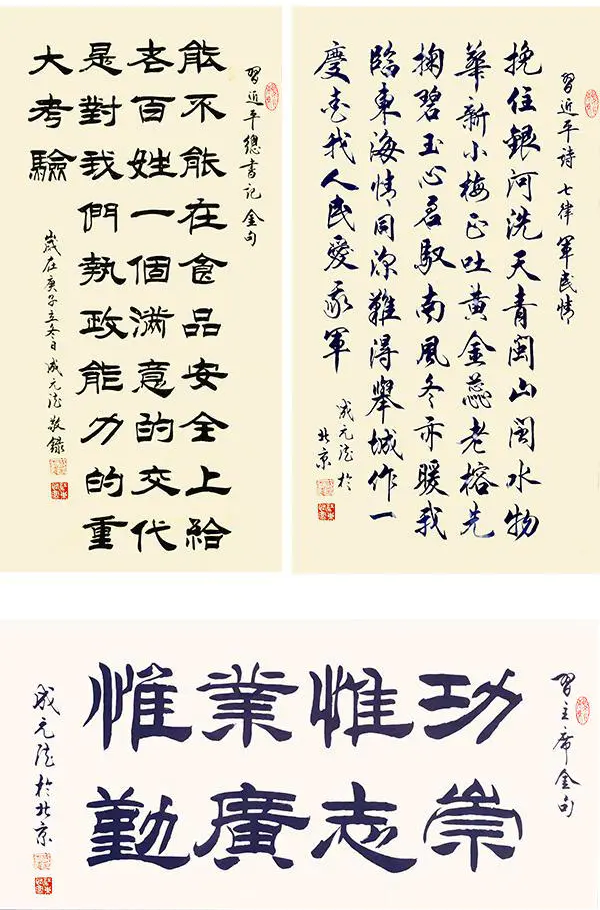 習近平總書記金句
能不能在食品安全上給
老百姓一個滿意的交代
是對我們執政能力的重
大考驗
歲在庚子立冬日 成元 敬錄
習近平詩 七律 軍民情
挽住銀河洗天青閩山閩水物
華新小梅正吐黃金蕊老榕先
掬碧玉心君馭南風冬亦暖我
臨東海情同深難得舉城作一
慶愛我人民愛我軍
成元 於
北京
習主席金句
功崇
惟志
業廣
惟勤
成元 於北京